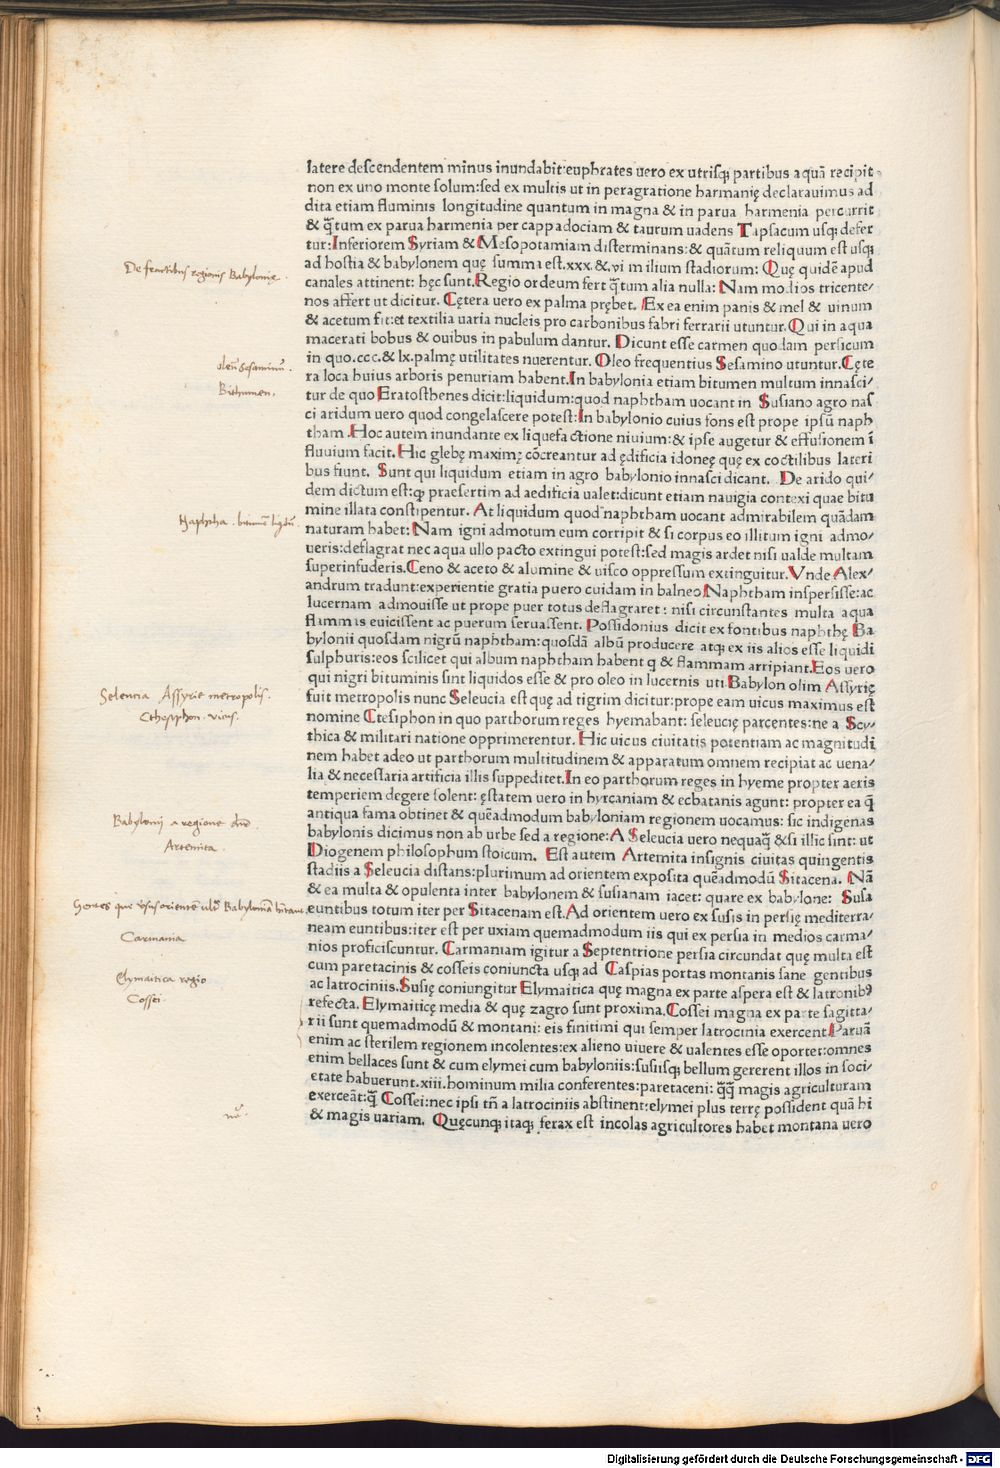 latere descendentem minus inundabit:euphrates uero ex utrisq; partibus aquã recipit
non ex uno monte solum:sed ex multis ut in peragratione harmanię declarauimus ad
dita etiam fluminis longitudine quantum in magna & in parua harmenia percurrit
& q̃tum ex parua harmenia per cappadociam & taurum uadens Tapsacum usq; defer
tur:Inferiorem Syriam & Mesopotamiam disterminans:& quãtum reliquum est usq;
ad hostia & babylonem quę summa est.xxx.&.vi milium stadiorum: Quę quidẽ apud
canales attinent: hęc sunt.Regio ordeum fert q̃tum alia nulla: Nam modios tricente/
nos affert ut dicitur. Cętera uero ex palma prębet. Ex ea enim panis & mel & uinum
& acetum fit:et textilia uaria nucleis pro carbonibus fabri ferrarii utuntur.Qui in aqua
macerati bobus & ouibus in pabulum dantur. Dicunt esse carmen quodam persicum
in quo.ccc.& lx.palmę utilitates nuerentur. Oleo frequentius Sesamino utuntur.Cęte
ra loca huius arboris penuriam habent.In babylonia etiam bitumen multum innasci/
tur de quo Eratosthenes dicit:liquidum:quod naphtham uocant in Susiano agro nas
ci aridum uero quod congelascere potest:In babylonio cuius fons est prope ipsũ naph
tham.Hoc autem inundante ex liquefactione niuium:& ipse augetur & effusionem ĩ
fluuium facit.Hic glebę maximę cõcreantur ad ędificia idoneę quę ex coctilibus lateri
bus fiunt. Sunt qui liquidum etiam in agro babylonio innasci dicant. De arido qui/
dem dictum est:q; praesertim ad aedificia ualet:dicunt etiam nauigia contexi quae bitu
mine illata constipentur. At liquidum quod naphtham uocant admirabilem quãdam
naturam habet: Nam igni admotum eum corripit & si corpus eo illitum igni admo/
ueris:deflagrat nec aqua ullo pacto extingui potest:sed magis ardet nisi ualde multam
superinfuderis.Ceno & aceto & alumine & uisco oppressum extinguitur.Vnde Alex/
andrum tradunt:experientie gratia puero cuidam in balneo Naphtham inspersisse:ac
lucernam admouisse ut prope puer totus deflagraret: nisi circunstantes multa aqua
flammas euicissent ac puerum seruassent. Possidonius dicit ex fontibus naphthę Ba
bylonii quosdam nigrũ naphtham:quosdã albũ producere atq; ex iis alios esse liquidi
sulphuris:eos scilicet qui album naphtham habent q & flammam arripiant.Eos uero
qui nigri bituminis sint liquidos esse & pro oleo in lucernis uti.Babylon olim Assyrię
fuit metropolis nunc Seleucia est quę ad tigrim dicitur:prope eam uicus maximus est
nomine Ctesiphon in quo parthorum reges hyemabant: seleucię parcentes:ne a Scy/
thica & militari natione opprimerentur. Hic uicus ciuitatis potentiam ac magnitudi
nem habet adeo ut parthorum multitudinem & apparatum omnem recipiat ac uena/
lia & necessaria artificia illis suppeditet.In eo parthorum reges in hyeme propter aeris
temperiem degere solent: ęstatem uero in hyrcaniam & ecbatanis agunt: propter ea q̃
antiqua fama obtinet & quẽadmodum babyloniam regionem uocamus: sic indigenas
babylonis dicimus non ab urbe sed a regione:A Seleucia uero nequaq̃ &si illic sint: ut
Diogenem philosophum stoicum. Est autem Artemita insignis ciuitas quingentis
stadiis a Seleucia distans:plurimum ad orientem exposita quẽadmodũ Sitacena. Nã
& ea multa & opulenta inter babylonem & susianam iacet: quare ex babylone: Susa
euntibus totum iter per Sitacenam est.Ad orientem uero ex susis in persię mediterra/
neam euntibus:iter est per uxiam quemadmodum iis qui ex persia in medios carma/
nios proficiscuntur. Carmaniam igitur a Septentrione persia circundat quę multa est
cum paretacinis & cosseis coniuncta usq; ad Caspias portas montanis sane gentibus
ac latrociniis.Susię coniungitur Elymaitica quę magna ex parte aspera est & latronibꝰ
refecta. Elymaiticę media & quę zagro sunt proxima.Cossei magna ex parte sagitta/
rii sunt quemadmodũ & montani: eis finitimi qui semper latrocinia exercent.Paruã
enim ac sterilem regionem incolentes:ex alieno uiuere & ualentes esse oportet:omnes
enim bellaces sunt & cum elymei cum babyloniis:susiisq; bellum gererent illos in soci/
etate habuerunt.xiii.hominum milia conferentes:paretaceni: q̃q̃ magis agriculturam
exerceãt:q̃ Cossei:nec ipsi tñ a latrociniis abstinent:elymei plus terrę possident quã hi
& magis uariam. Quęcunq; itaq; ferax est incolas agricultores habet montana uero
De fructibus regionis Babylonię.
oleũ Sesaminũ.
Bithumen.
Naphtha. bitumẽ liqdũ.
Seleucia Assyrie metropolis.
Cthesyphon. vicus.
Babylonij a regione dicti.
Artemita.
Gentes que versus orientẽ ultra Babylonẽ habitant.
Carmania
Elymaitica regio
Cossei.
Digitalisierung gefördert durch die Deutsche Forschungsgemeinschaft - DFG